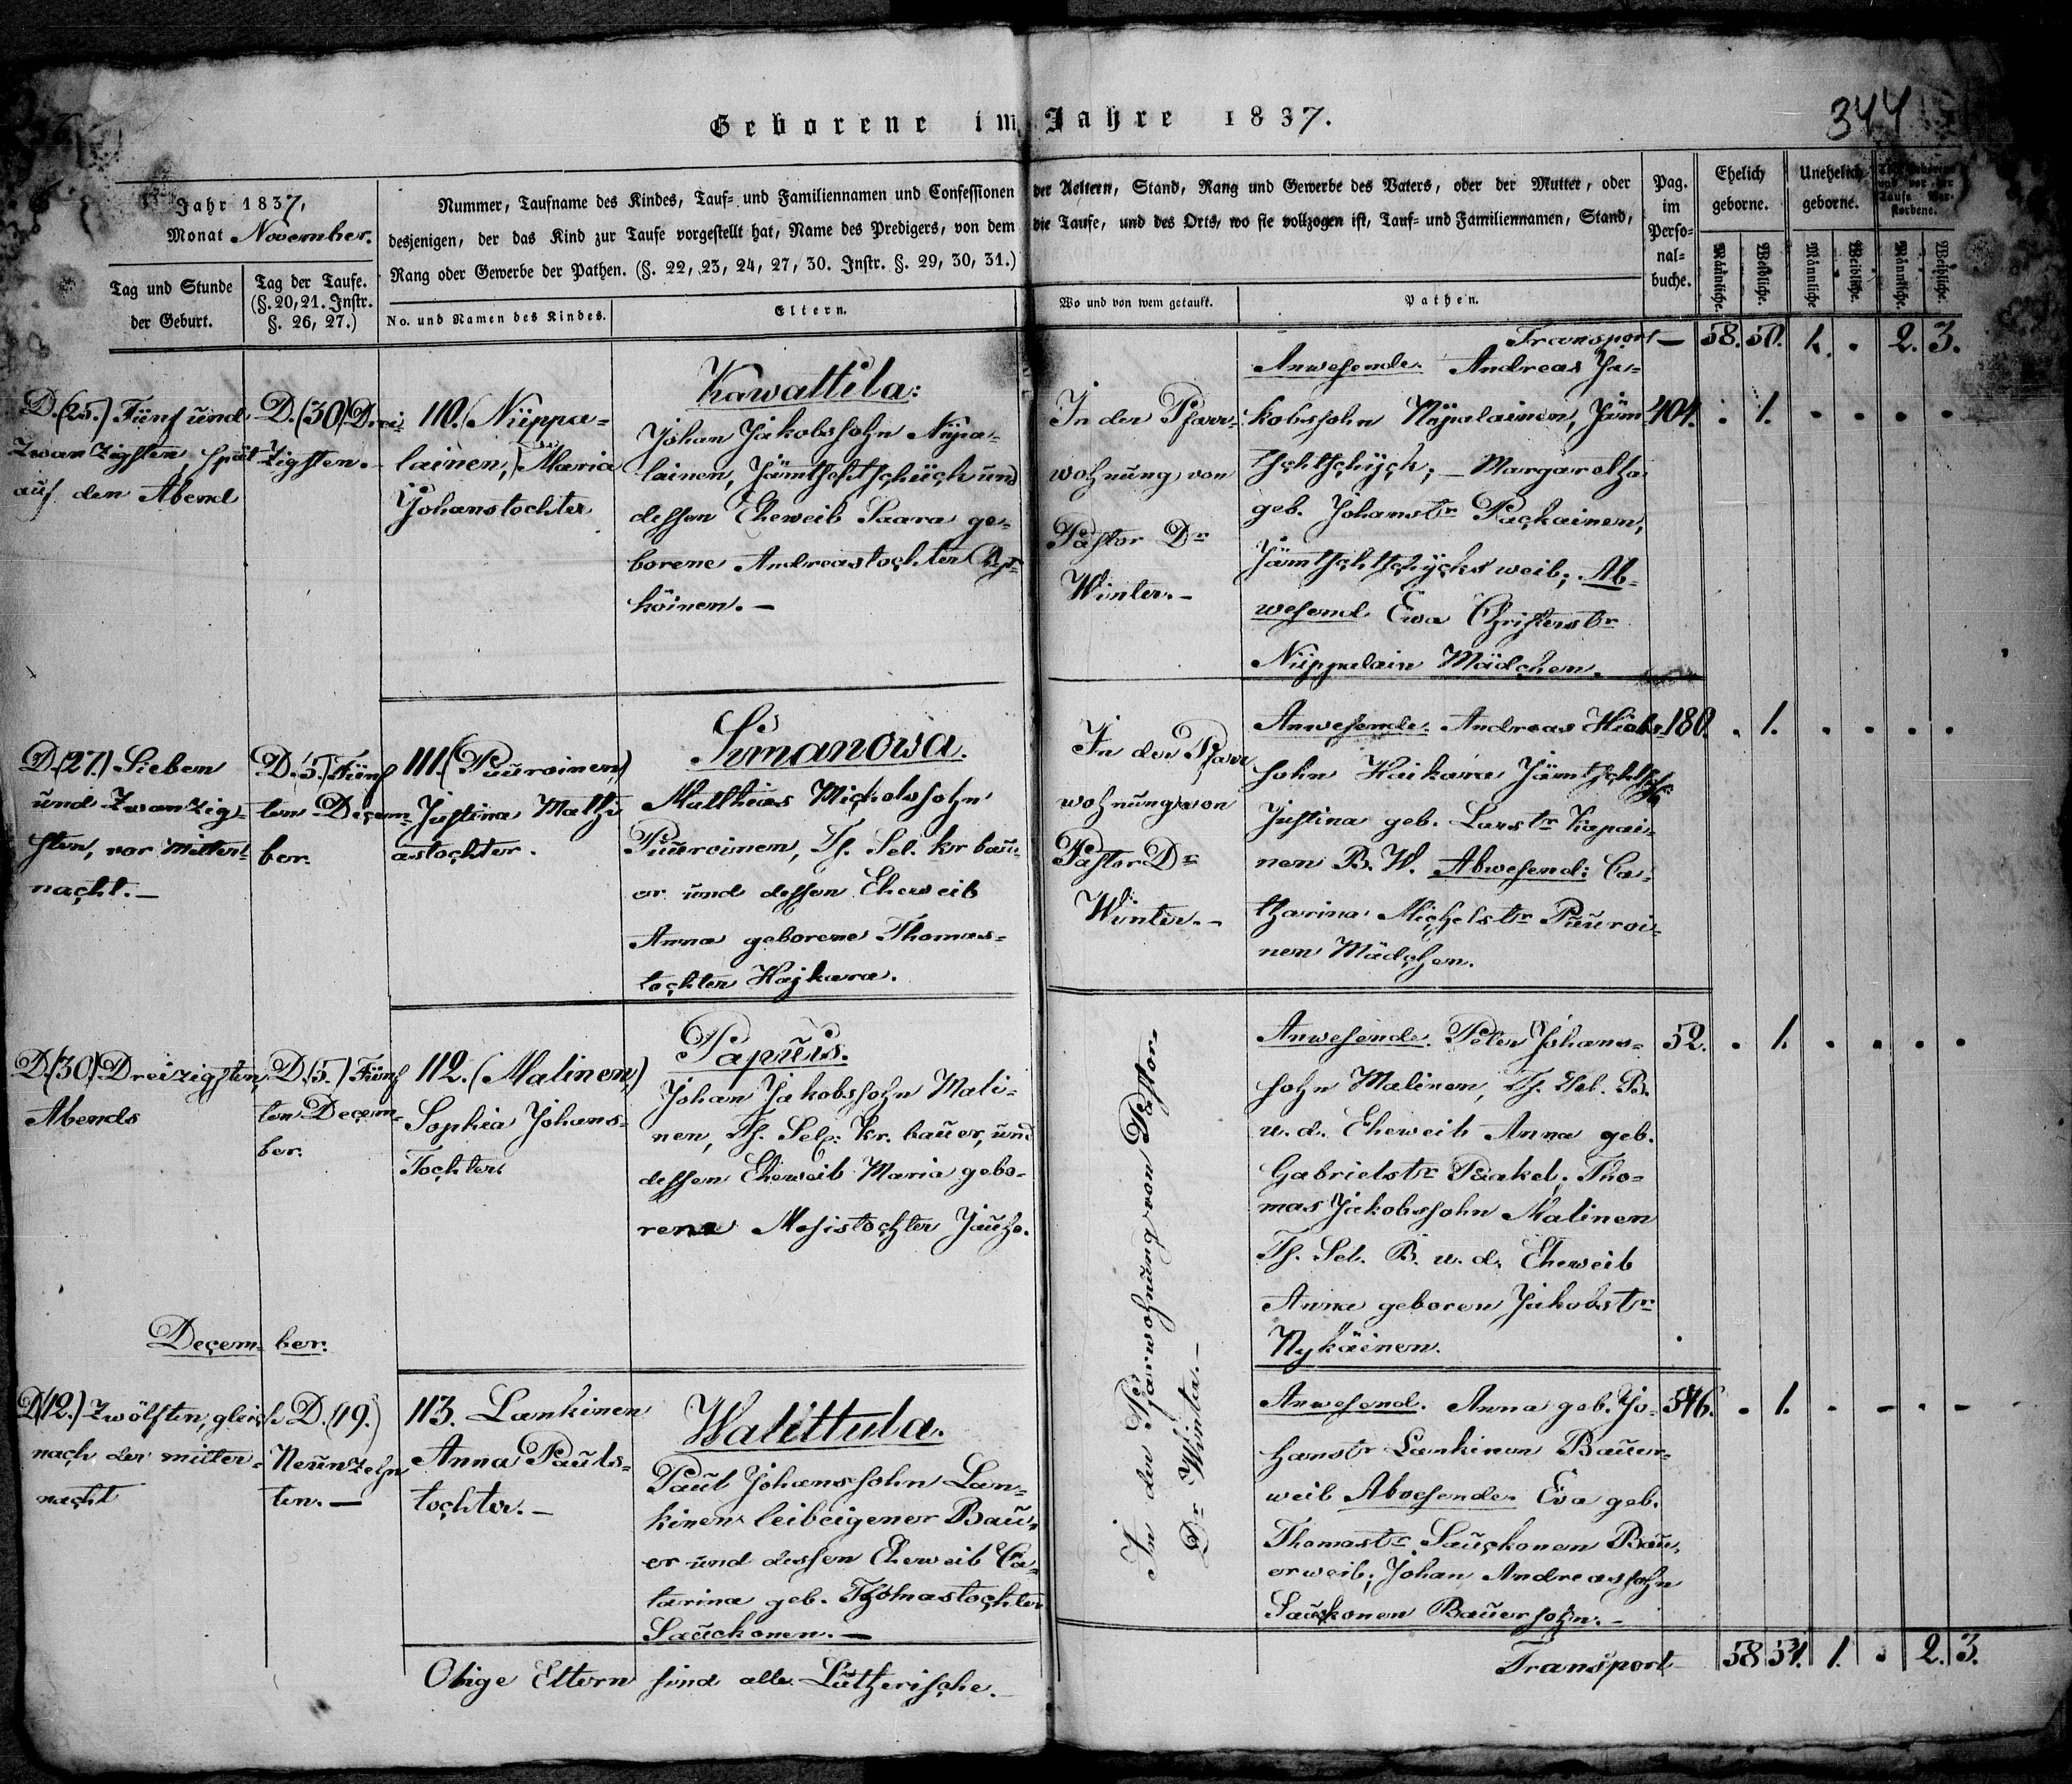 Geborene im Jahre 1837.
344
Jahr 1837,
Monat November.
Tag und Stunde
der Geburt.
Tag der Taufe.
(§. 20, 21. Instr.
§. 26, 27.)
Nummer, Taufname des Kindes, Tauf- und Familiennamen und Confessionen der Aeltern, Stand, Rang und Gewerbe des Vaters, oder der Mutter, oder
desjenigen, der das Kind zur Taufe vorgestellt hat, Name des Predigers, von dem die Taufe, und des Orts, wo sie vollzogen ist, Tauf- und Familiennamen, Stand,
Rang oder Gewerbe der Pathen. (§. 22, 23, 24, 27, 30. Instr. §. 29, 30, 31.)
No. und Namen des Kindes.
Eltern.
Wo und von wem getauft.
Pathen.
Pag.
im
Perso-
nal-
buche.
Ehelich
geborne.
Unehelich
geborne.
Todtgeborene
und vor der
Taufe Ver-
storbene.
Männliche.
Weibliche.
Männliche.
Weibliche.
Männliche.
Weibliche.
Transport — 58. 50. 1. . 2. 3.
D. (25.) Fünf und
zwanzigsten, spät
auf den Abend
D. (30) Drei-
zigsten.
110. (Nüppa-
lainen,) Maria
Johanstochter
Kawattila:
Johan Jakobssohn Nüpa-
lainen, Jämtschtschück und
dessen Eheweib Saara ge-
borene Andreastochter
köinen. —
In der Pfarr-
wohnung von
Pastor Dr
Winter. —
Anwesende. Andreas Ja-
kobssohn Nüpalainen, Jäm-
tschtschÿck; — Margaretha
geb. Johanstr Pachainen,
Jämtschtschÿcks weib; Ab-
wesend Ewa Christerstr
Nüppalain Mädchen.
404. . 1. . . . .
D. (27.) Sieben
und zwanzig-
sten, vor Mitter-
nacht. —
D. (5.) Fünf
ten Decem-
ber.
111. (Puuroinen)
Justina Mathi-
astochter.
Simanowa.
Matthias Michelssohn
Puuroinen, Zs. Sel. kr bau-
er und dessen Eheweib
Anna geborene Thomas-
tochter Hajkara.
In der Pfarr
wohnung von
Pastor Dr
Winter. —
Anwesende. Andreas
sohn Haikara Jämtschtsch
Justina geb. Larstr Kapai-
nen B. W. Abwesend: Ca-
tharina Michelstr Puuroi-
nen Mädchen.
180. . 1. . . . .
D. (30) Dreizigsten
Abends
D. (5.) Fünf
ten Decem-
ber.
112. (Malinen)
Sophia Johans-
Tochter
Papuus.
Johan Jakobssohn Mali-
nen, Zs. Sel. Kr. bauer, und
dessen Eheweib Maria gebo-
rene Mosistochter Jauho.
In der Pfarrwohnung von Pastor
Dr Winter. —
Anwesende. Peter Johans-
sohn Malinen, Zs. Sel. B.
u. d. Eheweib Anna geb.
Gabrielstr Paakel; Tho-
mas Jakobssohn Malinen
Zs. Sel. B. u. d. Eheweib
Anna geboren Jakobstr
Nykäinen.
52. . 1. . . . .
December.
D. (12.) Zwölften, gleich
nach der mitter-
nacht
D. (19.)
Neunzehn
ten. —
113. Lankinen
Anna Pauls-
tochter. —
Walittula.
Paul Johanssohn Lan-
kinen leibeigener Bau-
er und dessen Eheweib Ca-
tarina geb. Thomastochter
Sauckonen. —
Anwesend. Anna geb. Jo-
hanstr Lankinen Bauer-
weib Abwesende. Eva geb.
Thomastr Sauckonen Bau-
erweib; Johan Andreassohn
Sauckonen Bauersohn. —
546. . 1. . . . .
Obige Eltern sind alle Lutherische. —
Transport 58 54. 1. . 2. 3.